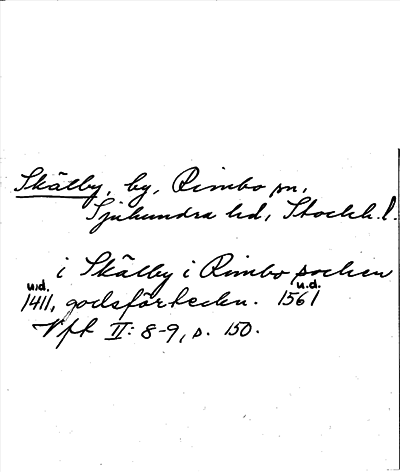 Skätby, by, Rimbo sn,
Sjuhundra hd, Stockh. l.
i Skätby i Rimbo socken
u.d. u.d.
1411, godsförteckn. 1561
Vft II: 8-9, s. 150.